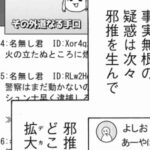 事実無根の
疑惑は次々
邪推を生んで
その外道なる手口
4:名無し君 ID:Xor4q
火の立たぬところに煙
4:名無し君 ID:RLw2H
警察はまだ動かないの
シュン士早く逮捕し
よしお
あーや
邪推
どこ
拡大